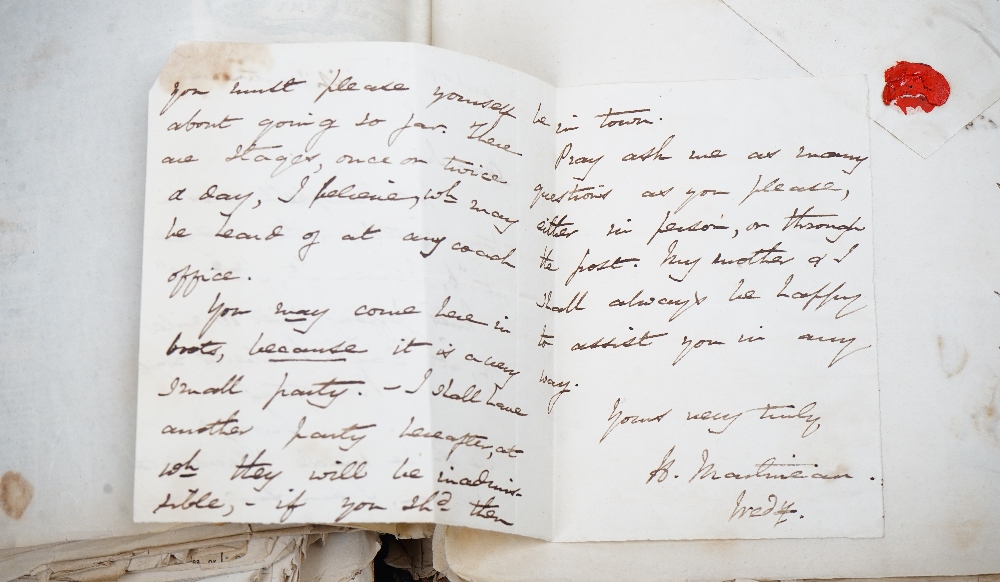 you must please yourself
about going so far. There
are stages, once or twice
a day, I believe, wh may
be heard of at any coach
office.
You may come here in
boots, because it is a very
small party. – I shall have
another party hereafter, at
wh they will be inadmis-
sible, – if you shd then
be in town.
Pray ask me as many
questions as you please,
either in person, or through
the post. My mother & I
shall always be happy
to assist you in any
way.
Yours very truly,
H. Martineau.
Wedy.